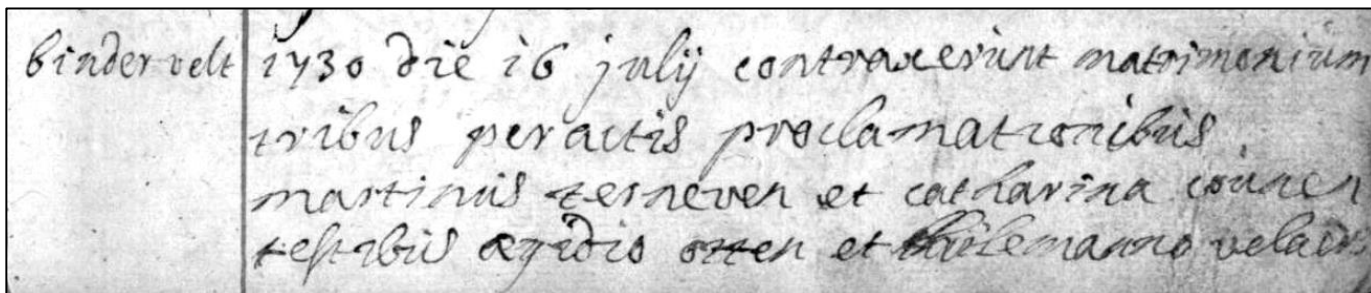 bindervelt 1730 die 16 julij contraxerunt matrimonium
tribus peractis proclamationibus
martinus terneven et catharina counen
testibus ægidio otten et thielemanno